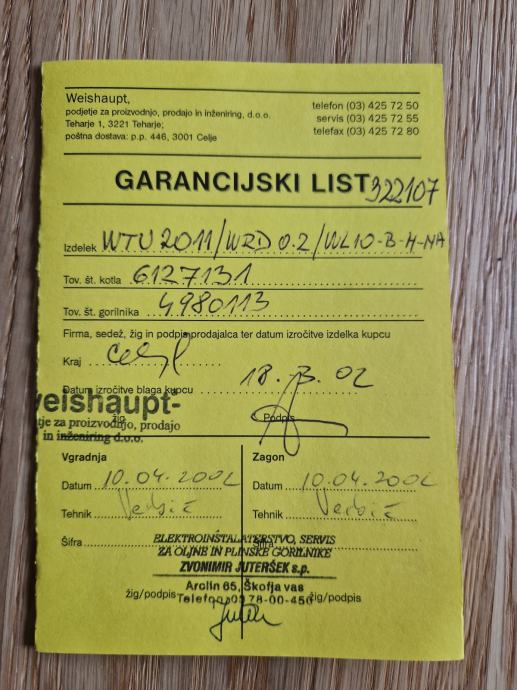 Weishaupt,
podjetje za proizvodnjo, prodajo in inženiring, d.o.o.
Teharje 1, 3221 Teharje;
poštna dostava: p.p. 446, 3001 Celje
telefon (03) 425 72 50
servis (03) 425 72 55
telefax (03) 425 72 80
GARANCIJSKI LIST 322107
Izdelek WTU 2011/WRD 0.2/WL10-B-H-NA
Tov. št. kotla 6127131
Tov. št. gorilnika 4980113
Firma, sedež, žig in podpis prodajalca ter datum izročitve izdelka kupcu
Kraj Celje
Datum izročitve blaga kupcu 02
weishaupt-
žig
Podpis
tje za proizvodnjo, prodajo
in inženiring d.o.o.
Vgradnja
Datum 10.04.2002
Tehnik
Šifra
Zagon
Datum 10.04.2002
Tehnik
Šifra
ELEKTROINŠTALATERSTVO, SERVIS
ZA OLJNE IN PLINSKE GORILNIKE
ZVONIMIR JUTERŠEK s.p.
Arclin 65, Škofja vas
žig/podpis Telefon: 0378-00-450 žig/podpis